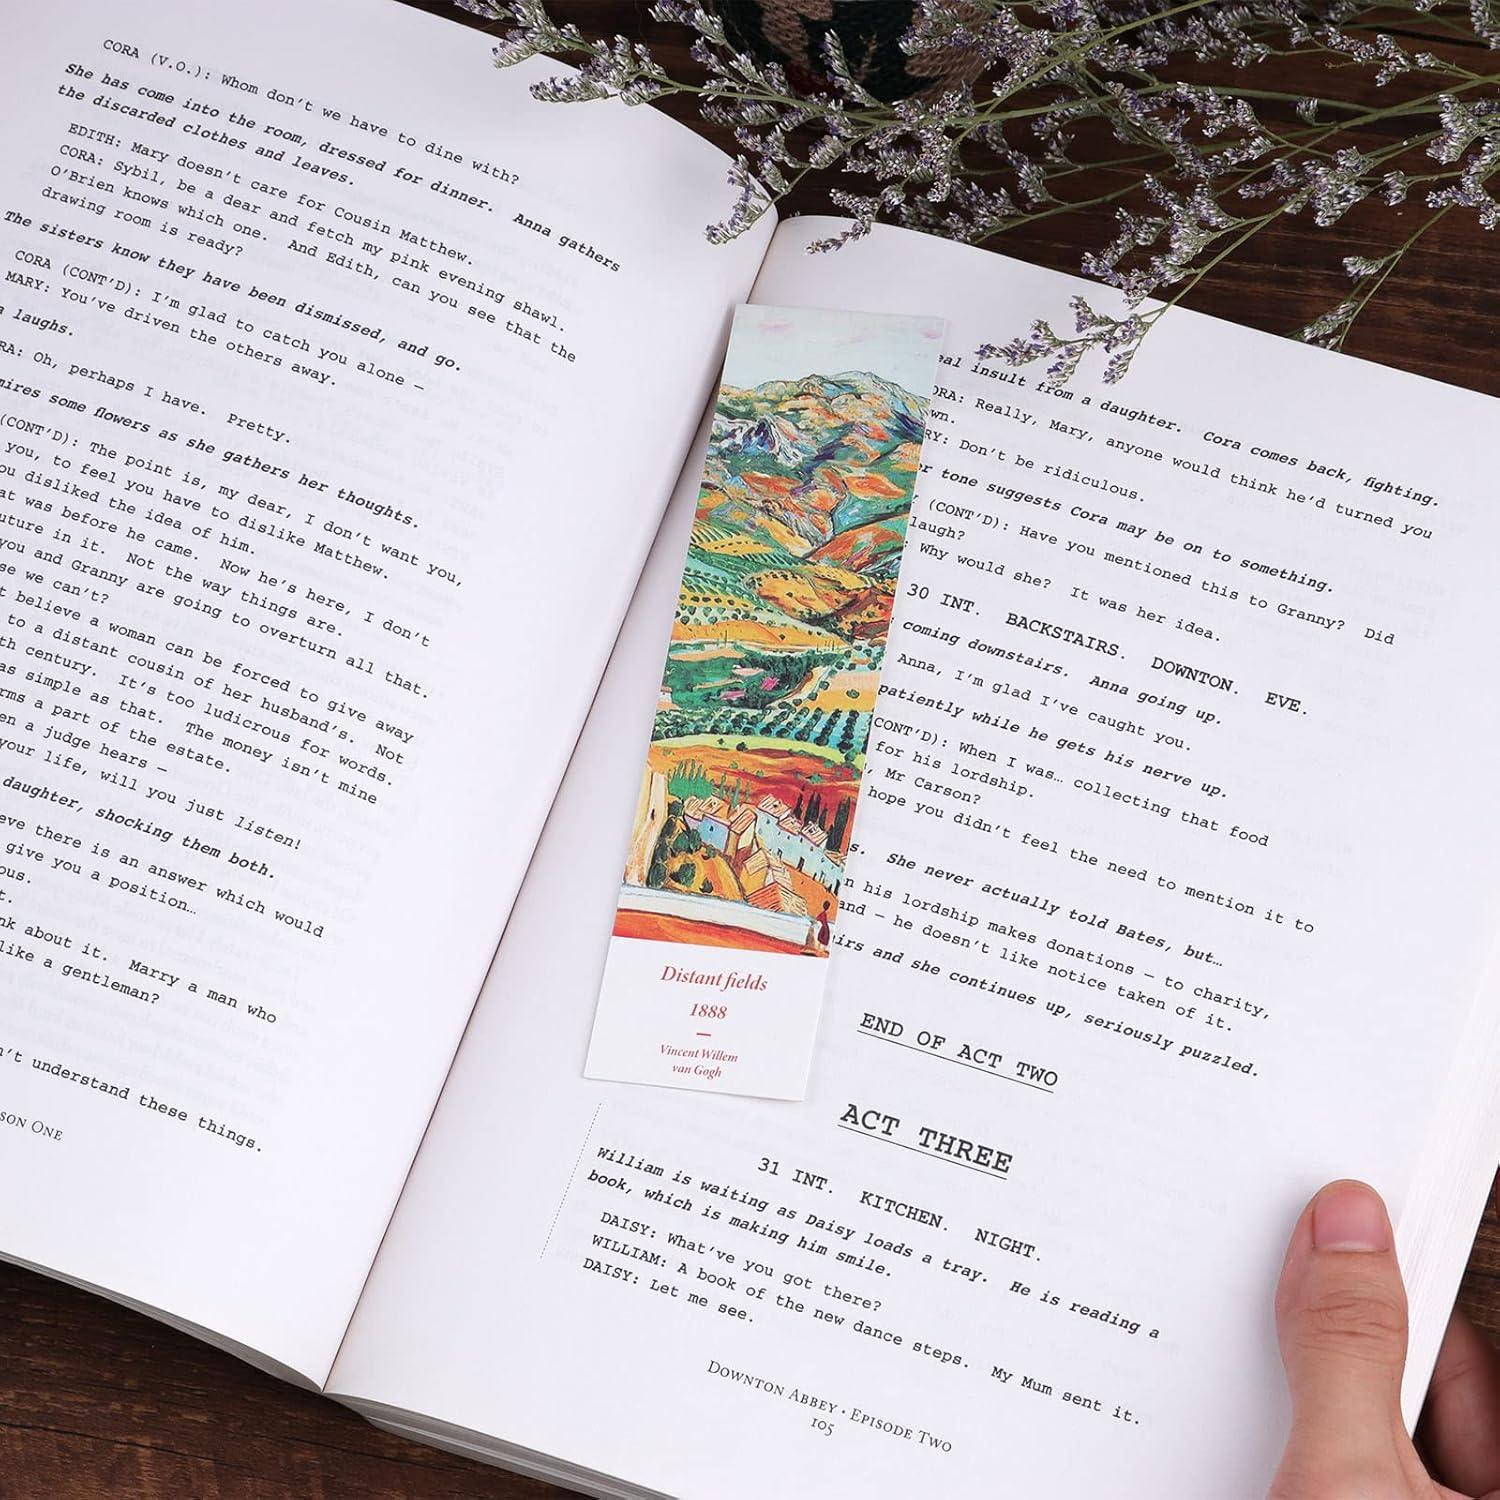 CORA (V.O.): Whom don't we have to dine with?
She has come into the room, dressed for dinner. Anna gathers
the discarded clothes and leaves.
EDITH: Mary doesn't care for Cousin Matthew.
CORA: Sybil, be a dear and fetch my pink evening shawl.
O'Brien knows which one. And Edith, can you see that the
drawing room is ready?
The sisters know they have been dismissed, and go.
CORA (CONT'D): I'm glad to catch you alone –
MARY: You've driven the others away.
laughs.
Oh, perhaps I have. Pretty.
some flowers as she gathers her thoughts.
(CONT'D): The point is, my dear, I don't want you,
you, to feel you have to dislike Matthew.
disliked the idea of him.
was before he came. Now he's here, I don't
in it. Not the way things are.
you and Granny are going to overturn all that.
we can't?
believe a woman can be forced to give away
to a distant cousin of her husband's. Not
century. It's too ludicrous for words.
as simple as that. The money isn't mine
a part of the estate.
a judge hears –
your life, will you just listen!
daughter, shocking them both.
there is an answer which would
give you a position…
about it. Marry a man who
like a gentleman?
understand these things.
ONE
insult from a daughter. Cora comes back, fighting.
Really, Mary, anyone would think he'd turned you
Don't be ridiculous.
tone suggests Cora may be on to something.
(CONT'D): Have you mentioned this to Granny? Did
laugh?
Why would she? It was her idea.
30 INT. BACKSTAIRS. DOWNTON. EVE.
coming downstairs. Anna going up.
Anna, I'm glad I've caught you.
patiently while he gets his nerve up.
CONT'D): When I was… collecting that food
for his lordship.
, Mr Carson?
hope you didn't feel the need to mention it to
She never actually told Bates, but…
his lordship makes donations – to charity,
and – he doesn't like notice taken of it.
and she continues up, seriously puzzled.
END OF ACT TWO
ACT THREE
31 INT. KITCHEN. NIGHT.
William is waiting as Daisy loads a tray. He is reading a
book, which is making him smile.
DAISY: What've you got there?
WILLIAM: A book of the new dance steps. My Mum sent it.
DAISY: Let me see.
DOWNTON ABBEY · EPISODE TWO
105
Distant fields
1888
–
Vincent Willem
van Gogh